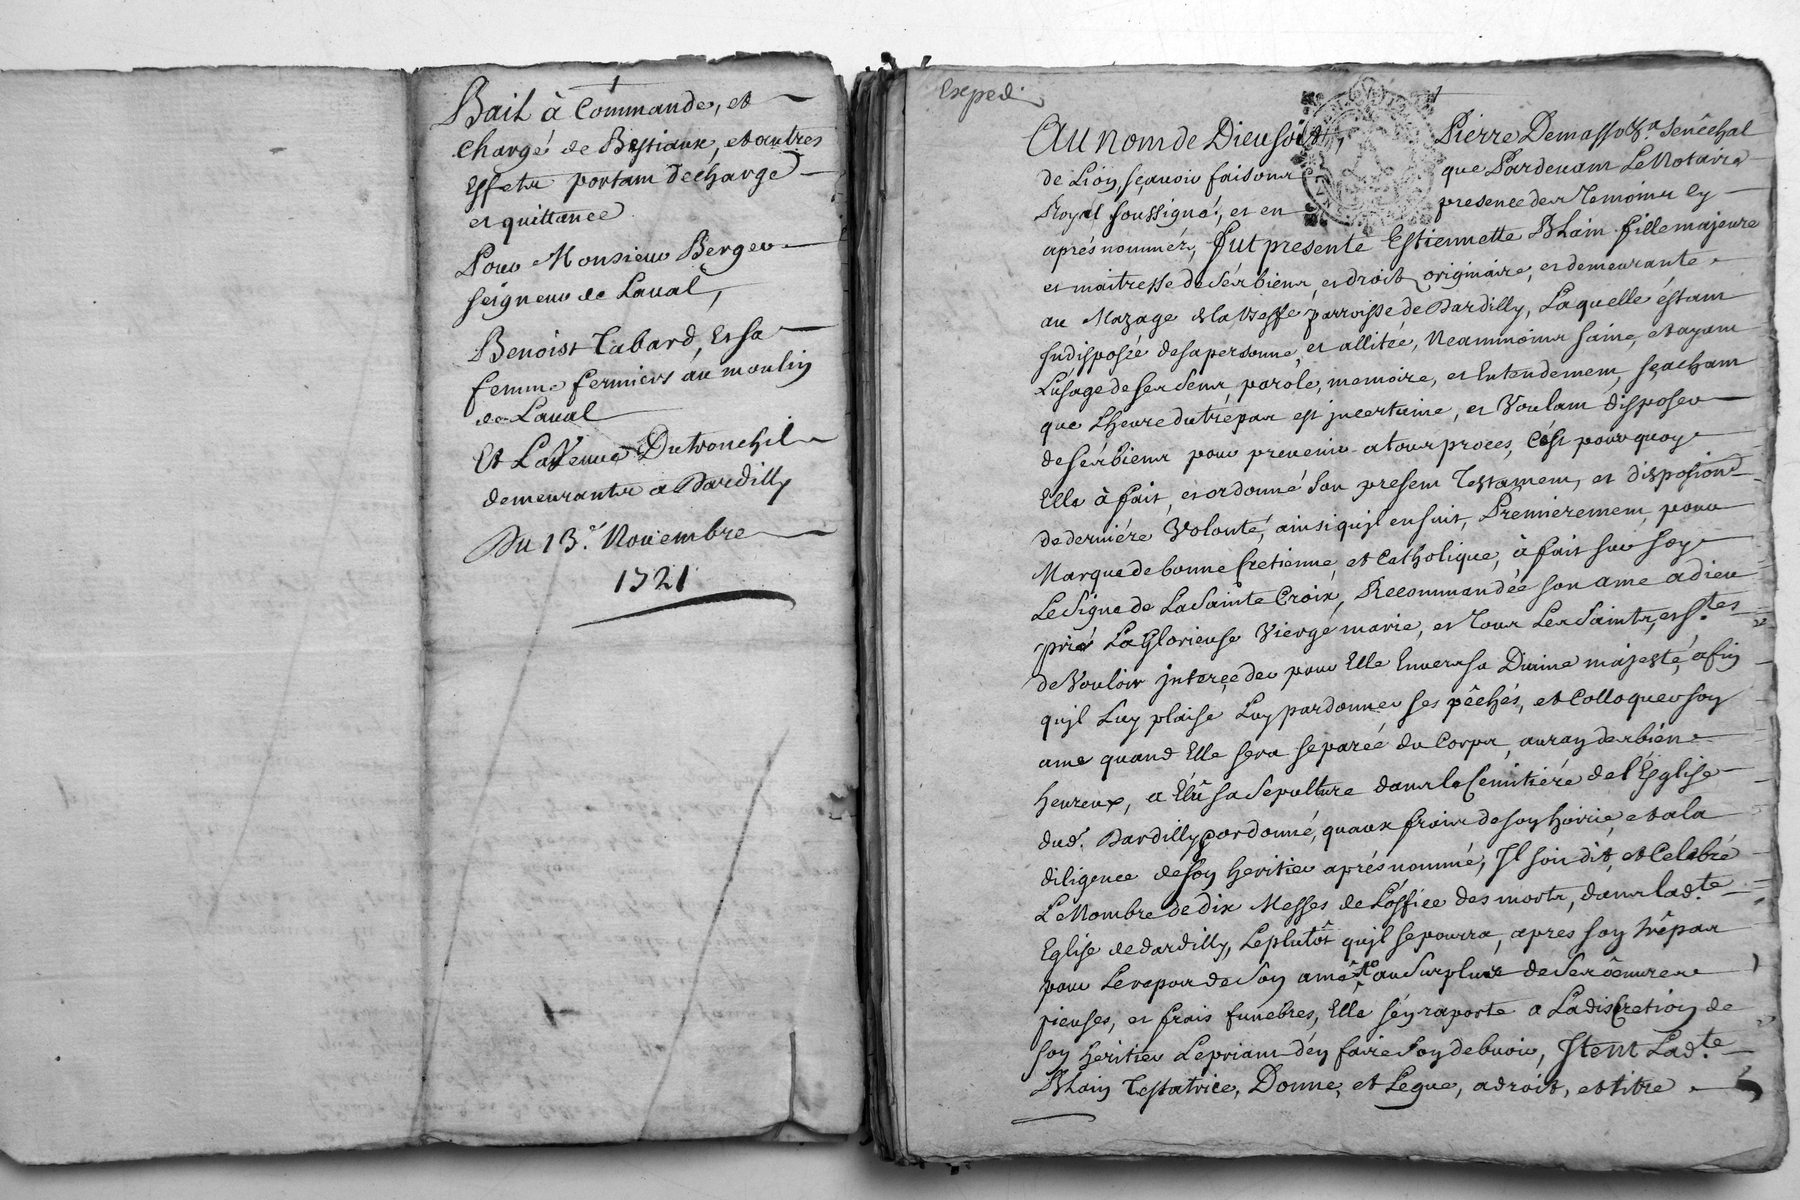 Bail à Commande, et
chargé de Bestiaux, et autres
Effets portant decharge
et quittance
Pour Monsieur Berger
seigneur de Laval,
Benoist Tabard, et sa
femme fermiers au moulin
de Laval
Et La Veuve Dutronchil
demeurants a Dardilly
Du 13.e Novembre
1721
Exped.
Au nom de Dieu soit, Pierre Demasso Sr. Senêchal
de Lion, sçavoir faisons que Pardevant Le Notaire
Royal soussigné, et en presence des Temoins cy
aprés nommés, fut presente Estiennette Blain fille majeure
et maitresse de sés biens, et droits originaire, et demeurante
au Mazage de la parroisse de Dardilly, Laquelle éstant
Indisposée de sa personne, et allitée, Neammoins saine, et ayant
L'usage de ses sens, parole, memoire, et Entendement, sçachant
que L'heure du trépas est jncertaine, et Voulant disposer
de sés biens pour prevenir a tous procés, C'ést pourquoy
Elle à fait, et ordonné son present Testament, et disposiond
de derniére Volonté, ainsi qujl ensuit, Premiérement pour
Marque de bonne Cretienne, et Catholique, à fait sur soy
Le signe de La Sainte Croix, Recommandée son ame a dieu
prié La Glorieuse Viergé marie, et Tous Les Saints, et Stes
de Vouloir jnterçeder pour Elle Envers sa Divine majesté, afin
qujl Luy plaise Luy pardonner ses pêchés, et Colloquer son
ame quand Elle sera separéé du Corps, au rang des bién
heureux, a Elû sa sepulture dans le Cemitiére de l'Église
dud. Dardilly, ordonné, quaux frais de son hoirie, et a la
diligence de son heritier aprés nommé, Il soit dit, et Celebré
Le Nombre de dix Messes de L'office des morts, dans lad.te
Eglise de dardilly, Le plutôt qujl se pourra, apres son trêpas
pour Le repos de son ame, au surplus de ses oeuvres
pieuses, et frais funebres, Elle s'én raporte a La discretion de
son heritier Le priant d'én faire son debvoir, Item Lad.te
Blain Testatrice, Donne, et Legue, a droit, et titre